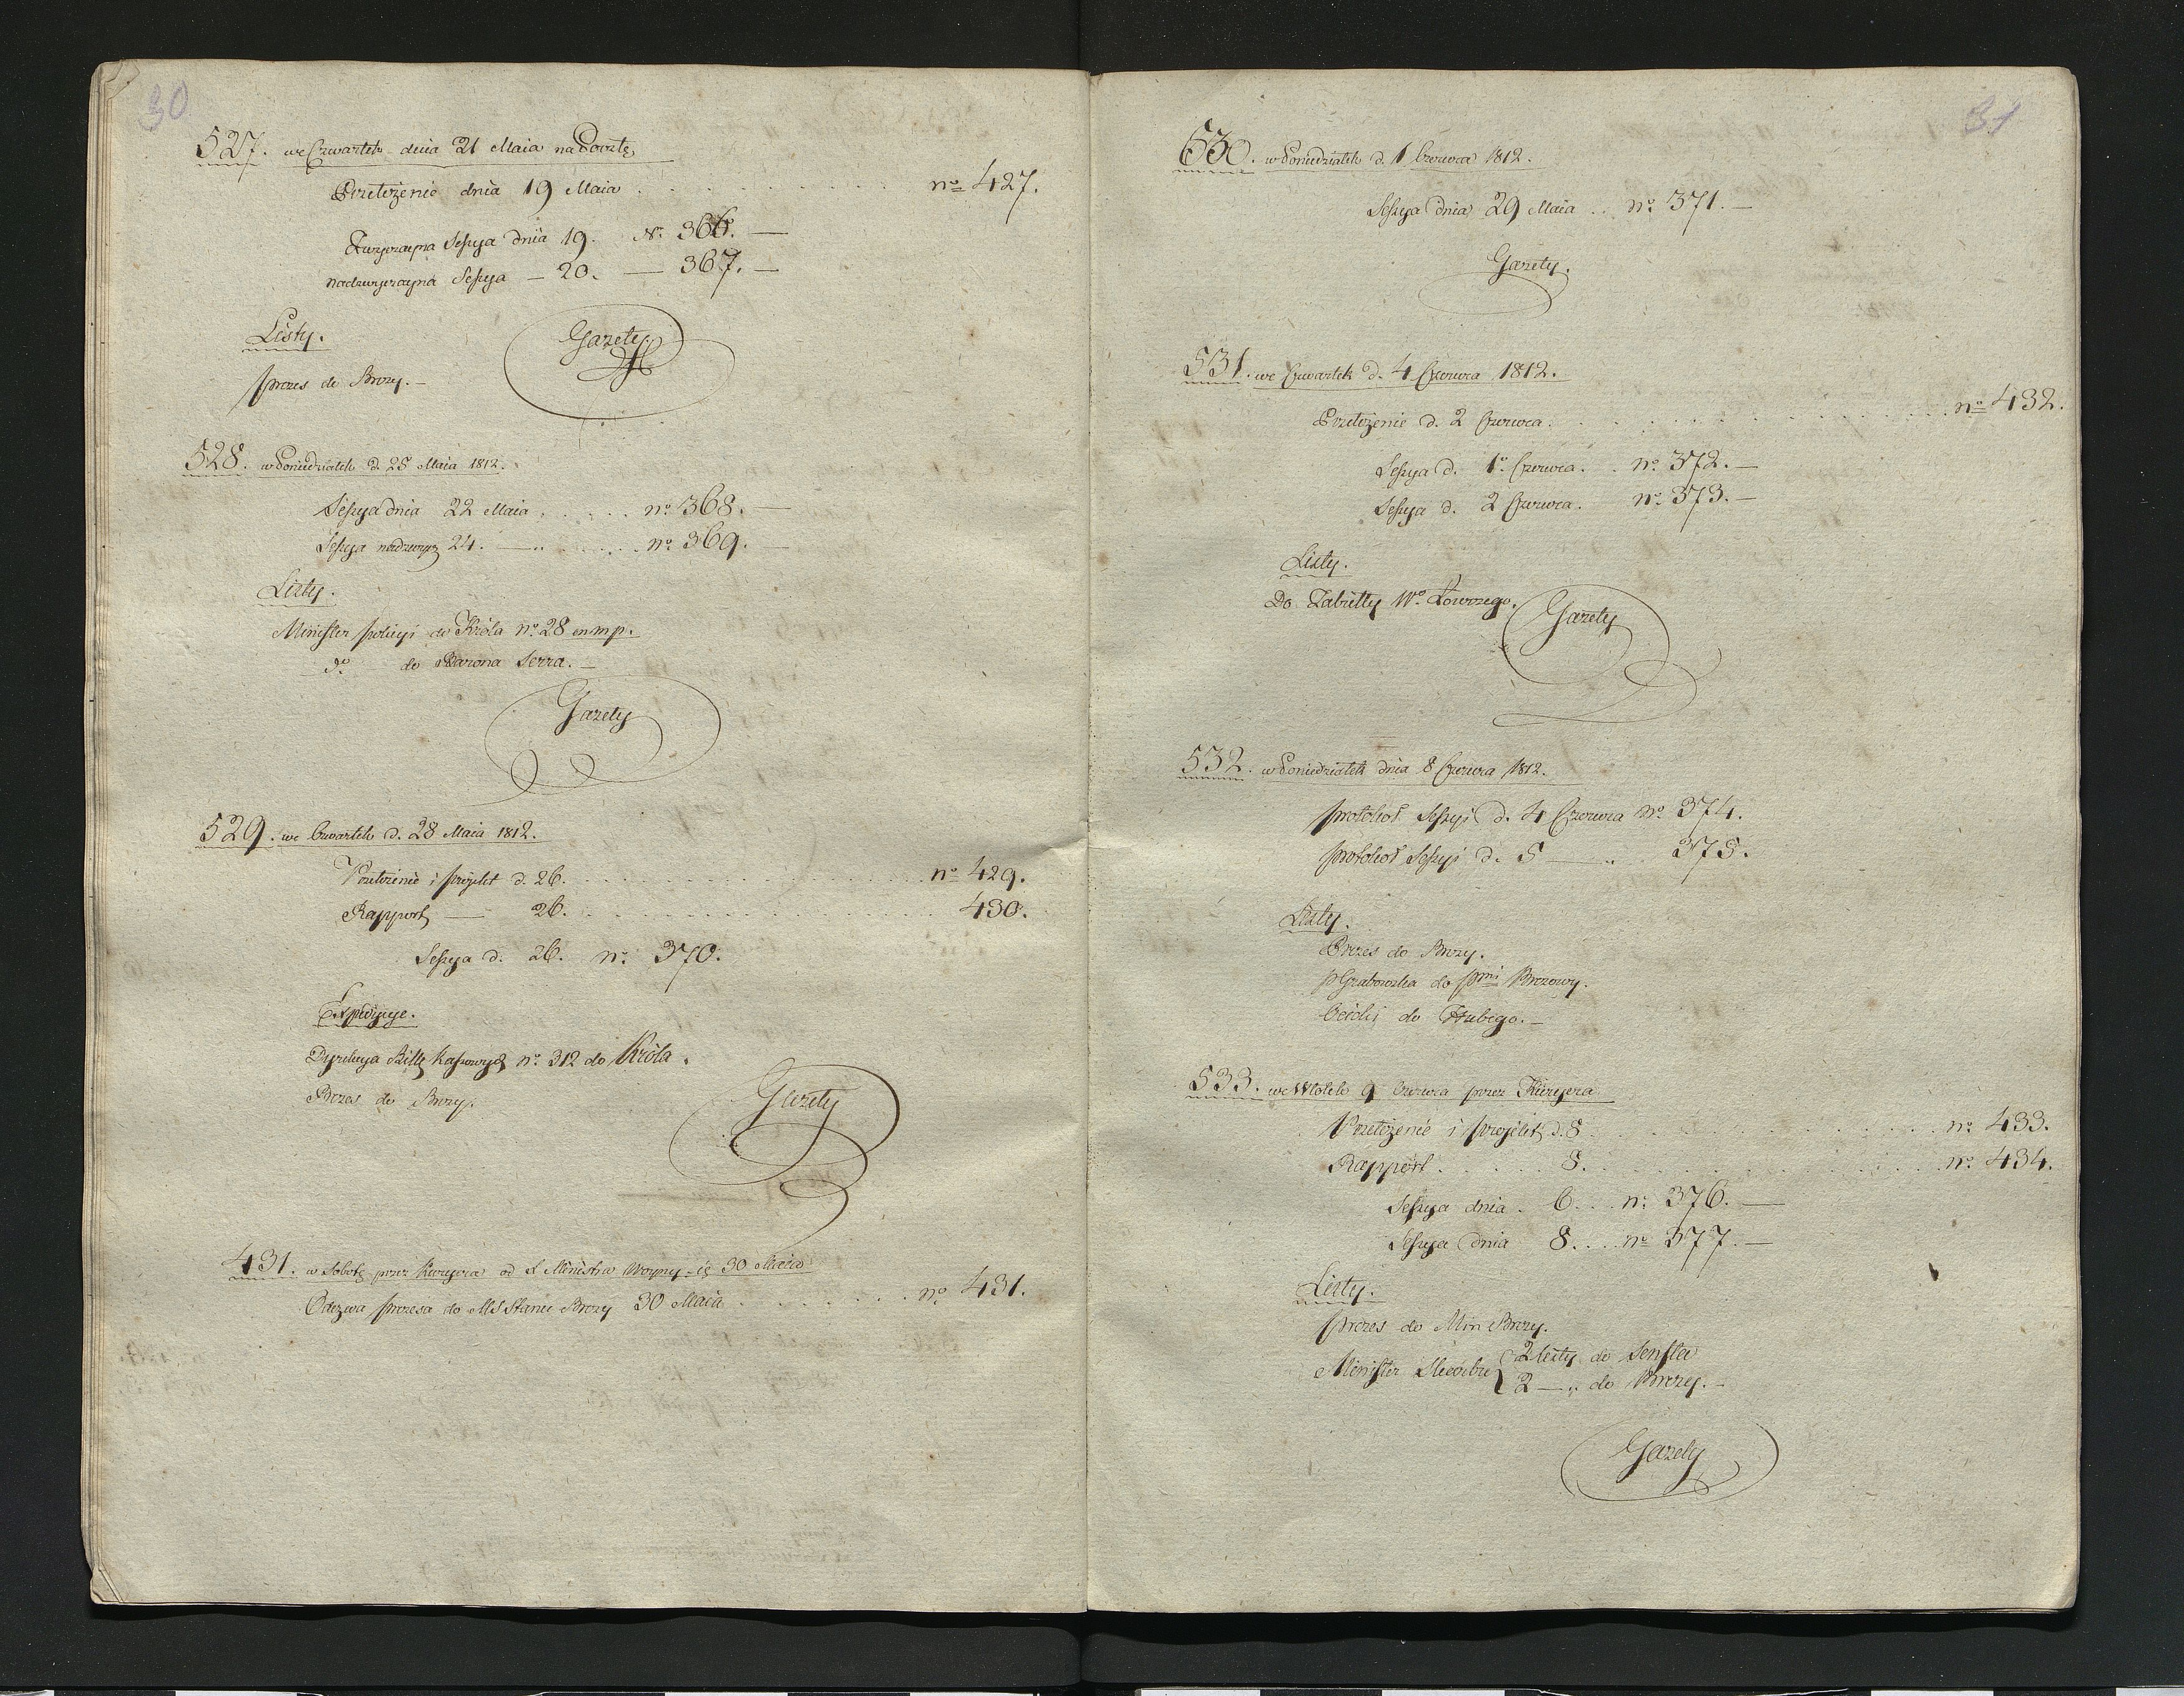 30
527. we Czwartek dnia 21 Maia na Pocztę
Przełożenie dnia 19 Maia . . . . . . . . . . no 427.
Zwyczayna Sessya dnia 19. No 366. —
nadzwyczayna Sessya — 20. — 367. —
Listy.
Prezes do Brezy. —
Gazety
528. w Poniedziałek d. 25 Maia 1812.
Sessya dnia 22 Maia . . . . . no 368. —
Sessya nadzwycz 24. — „ . . . . . no 369. —
Listy.
Minister policyi do Króla no 28 en mp.
do do Barona Serra. —
Gazety
529. we Czwartek d. 28 Maia 1812.
Przełożenie i projekt d. 26. . . . . . . . . . . no 429.
Rapport — 26. . . . . . . . . . . 430.
Sessya d. 26. no 370.
Expedycye.
Dyrekcya Bill. Kassowych no 312 do Króla.
Prezes do Brezy.
Gazety
431. w Sobotę przez Kuryera od Ministra Woyny 30 Maia
Odezwa Prezesa do M S Stanu Brezy 30 Maia . . . . . . . no 431.
31
530. w Poniedziałek d. 1 Czerwca 1812.
Sessya dnia 29 Maia . . no 371. —
Gazety.
531. we Czwartek d. 4 Czerwca 1812.
Przełożenie d. 2 Czerwca. . . . . . . . . . . . no 432.
Sessya d. 1o Czerwca. . no 372. —
Sessya d. 2 Czerwca. no 373. —
Listy.
Do Zabiełły Wo Łowczego.
Gazety
532. w Poniedziałek dnia 8 Czerwca 1812.
protokoł Sessyi d. 4 Czerwca no 374.
protokoł Sessyi d. 5 — „ 375.
Listy.
Prezes do Brezy.
P Grabowska do Pni Brezowy.
do
533. we Wtorek 9 Czerwca przez Kuryera
Przełożenie i projekt d. 8 . . . . . . . . . . no 433.
Rapport . . . . . 8. . . . . . . . . . . no 434.
Sessya dnia . 6 . . . no 376. —
Sessya dnia 8. . . . no 377. —
Listy.
Prezes do Min Brezy.
Minister Skarbu { 2 listy do Senfta
2 — „ do Brezy. —
Gazety